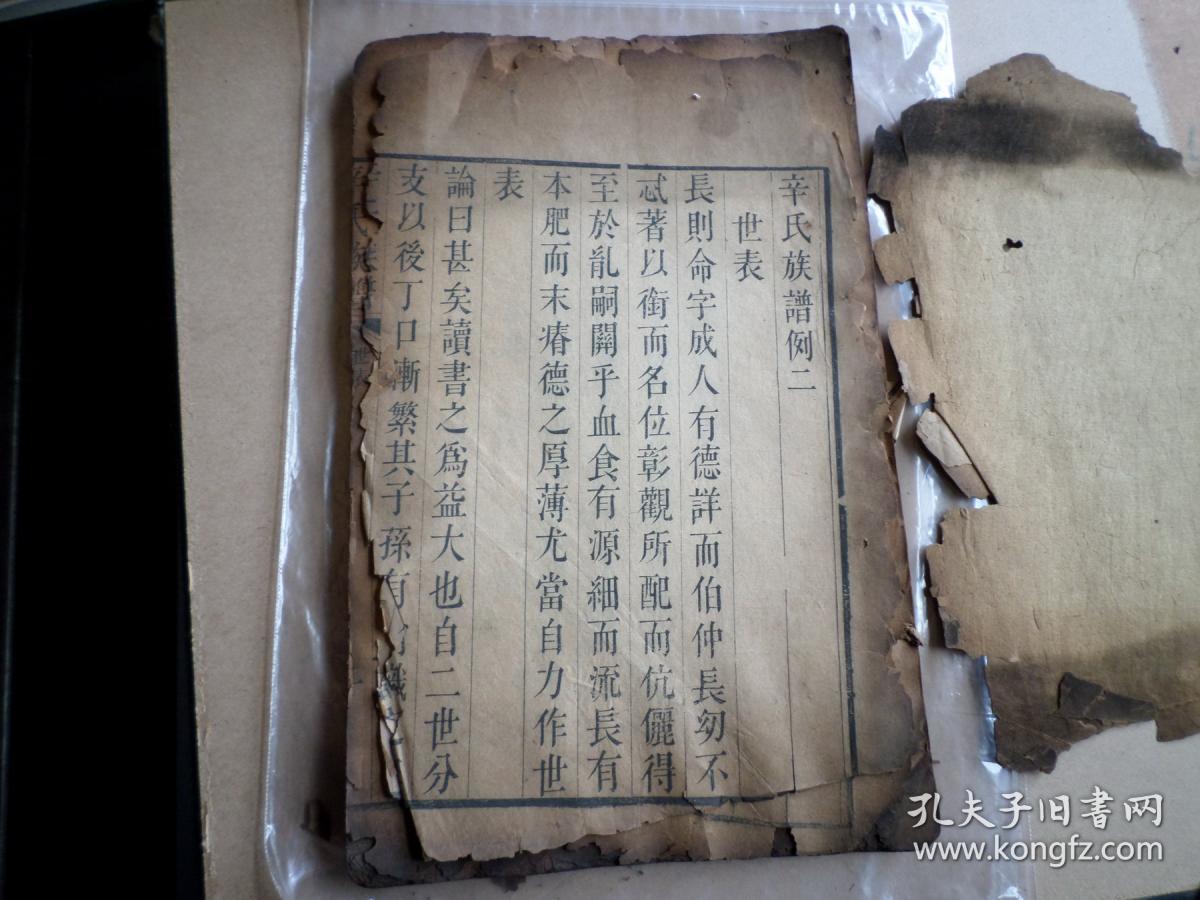 辛氏族譜例二
世表
長則命字成人有德詳而伯仲長幼不
忒著以銜而名位彰觀所配而伉儷得
至於亂嗣關乎血食有源細而流長有
本肥而末瘠德之厚薄尤當自力作世
表
論曰甚矣讀書之爲益大也自二世分
支以後丁口漸繁其子孫有
孔夫子旧书网
www.kongfz.com